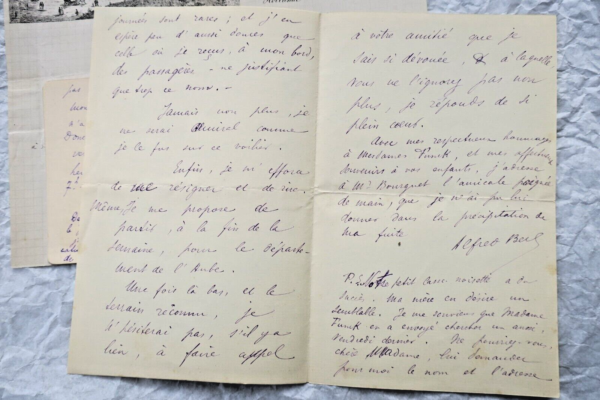 journées sont rares ; et j'en
espère peu d'aussi douces que
celle où je reçus, à mon bord,
des passagères - ne justifiant
que trop ce nom. -
Jamais non plus, je
ne serai comme
je le fus sur ce voilier.
Enfin, je m'efforce
de me résigner et de rire.
Même je me propose de
partir, à la fin de la
semaine, pour le départe-
ment de l'Aube.
Une fois là bas, et le
terrain reconnu, je
n'hésiterai pas, s'il y a
lieu, à faire appel
à votre amitié que je
sais si dévouée, & à laquelle
vous ne l'ignorez pas non
plus, je réponds de si
plein cœur.
Avec mes respectueux hommages
à Madame Funck, et mes affectueux
souvenirs à vos enfants, j'adresse
à Mr Bourguet l'amicale poignée
de main, que je n'ai pu lui
donner dans la précipitation de
ma fuite
Alfred
P.S. Notre petit casse noisette a du
succès. Ma mère en désire un
semblable. Je me souviens que Madame
Funck en a envoyé chercher un aussi,
vendredi dernier. Ne pourriez-vous,
chère Madame, lui demander
pour moi le nom et l'adresse